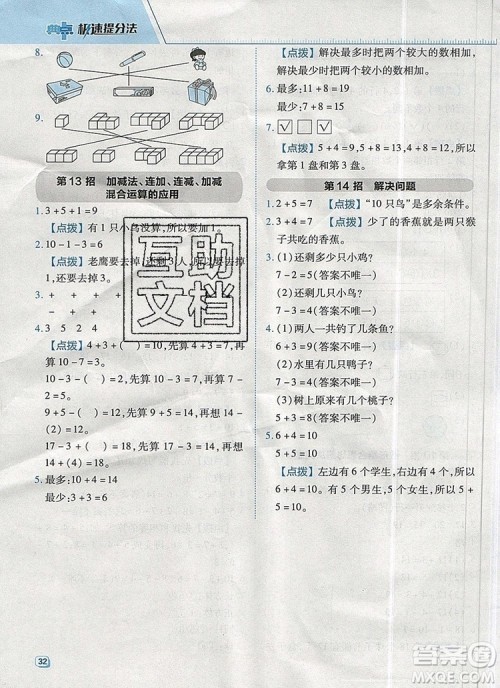 典点 极速提分法
8.
9.
第13招 加减法、连加、连减、加减
混合运算的应用
1. 3+5+1=9
【点拨】有1只小鸟没算,所以要加1。
2. 10-1-3=6
【点拨】老鹰要去掉1,还剩3个
1,还要去掉3。
3. + + + -
+ -
4. 3 5 2
【点拨】4+3+( )=10,先算4+3=7,再算10-7=3。
10-3-( )=2,先算10-3=7,再算7-2=5。
9+5-( )=12,先算9+5=14,再算14-12=2。
17-3+( )=16,先算17-3=14,再算
14+(2)=16。
5. 最多:10+4=14
最少:3+3=6
【点拨】解决最多时把两个较大的数相加,
解决最少时把两个较小的数相加。
6. 最多:11+8=19
最少:7+8=15
7. ☑ □ ☑
【点拨】5+4=9,5+3=8,4+3=7,所以
拿第1盘和第3盘。
第14招 解决问题
1. 2+5=7 【点拨】“10只鸟”是多余条件。
2. 4+3=7 【点拨】少了的香蕉就是两只猴
子共吃的香蕉。
3. (1)还剩多少只小鸟?
7-2=5(答案不唯一)
(2)还剩几只小鸟?
7-4=3(答案不唯一)
4. (1)两人一共钓了几条鱼?
6+3=9(答案不唯一)
(2)水里有几只鸭子?
9-2=7(答案不唯一)
(3)树上原来有几个桃子?
5+3=8(答案不唯一)
5. 6+4=10
【点拨】左边有6个学生,右边有4个,所以
6+4=10。有5个男生,有5个女生,所以5+
5=10。
互助
文档
32
答案圈
MXQE.COM